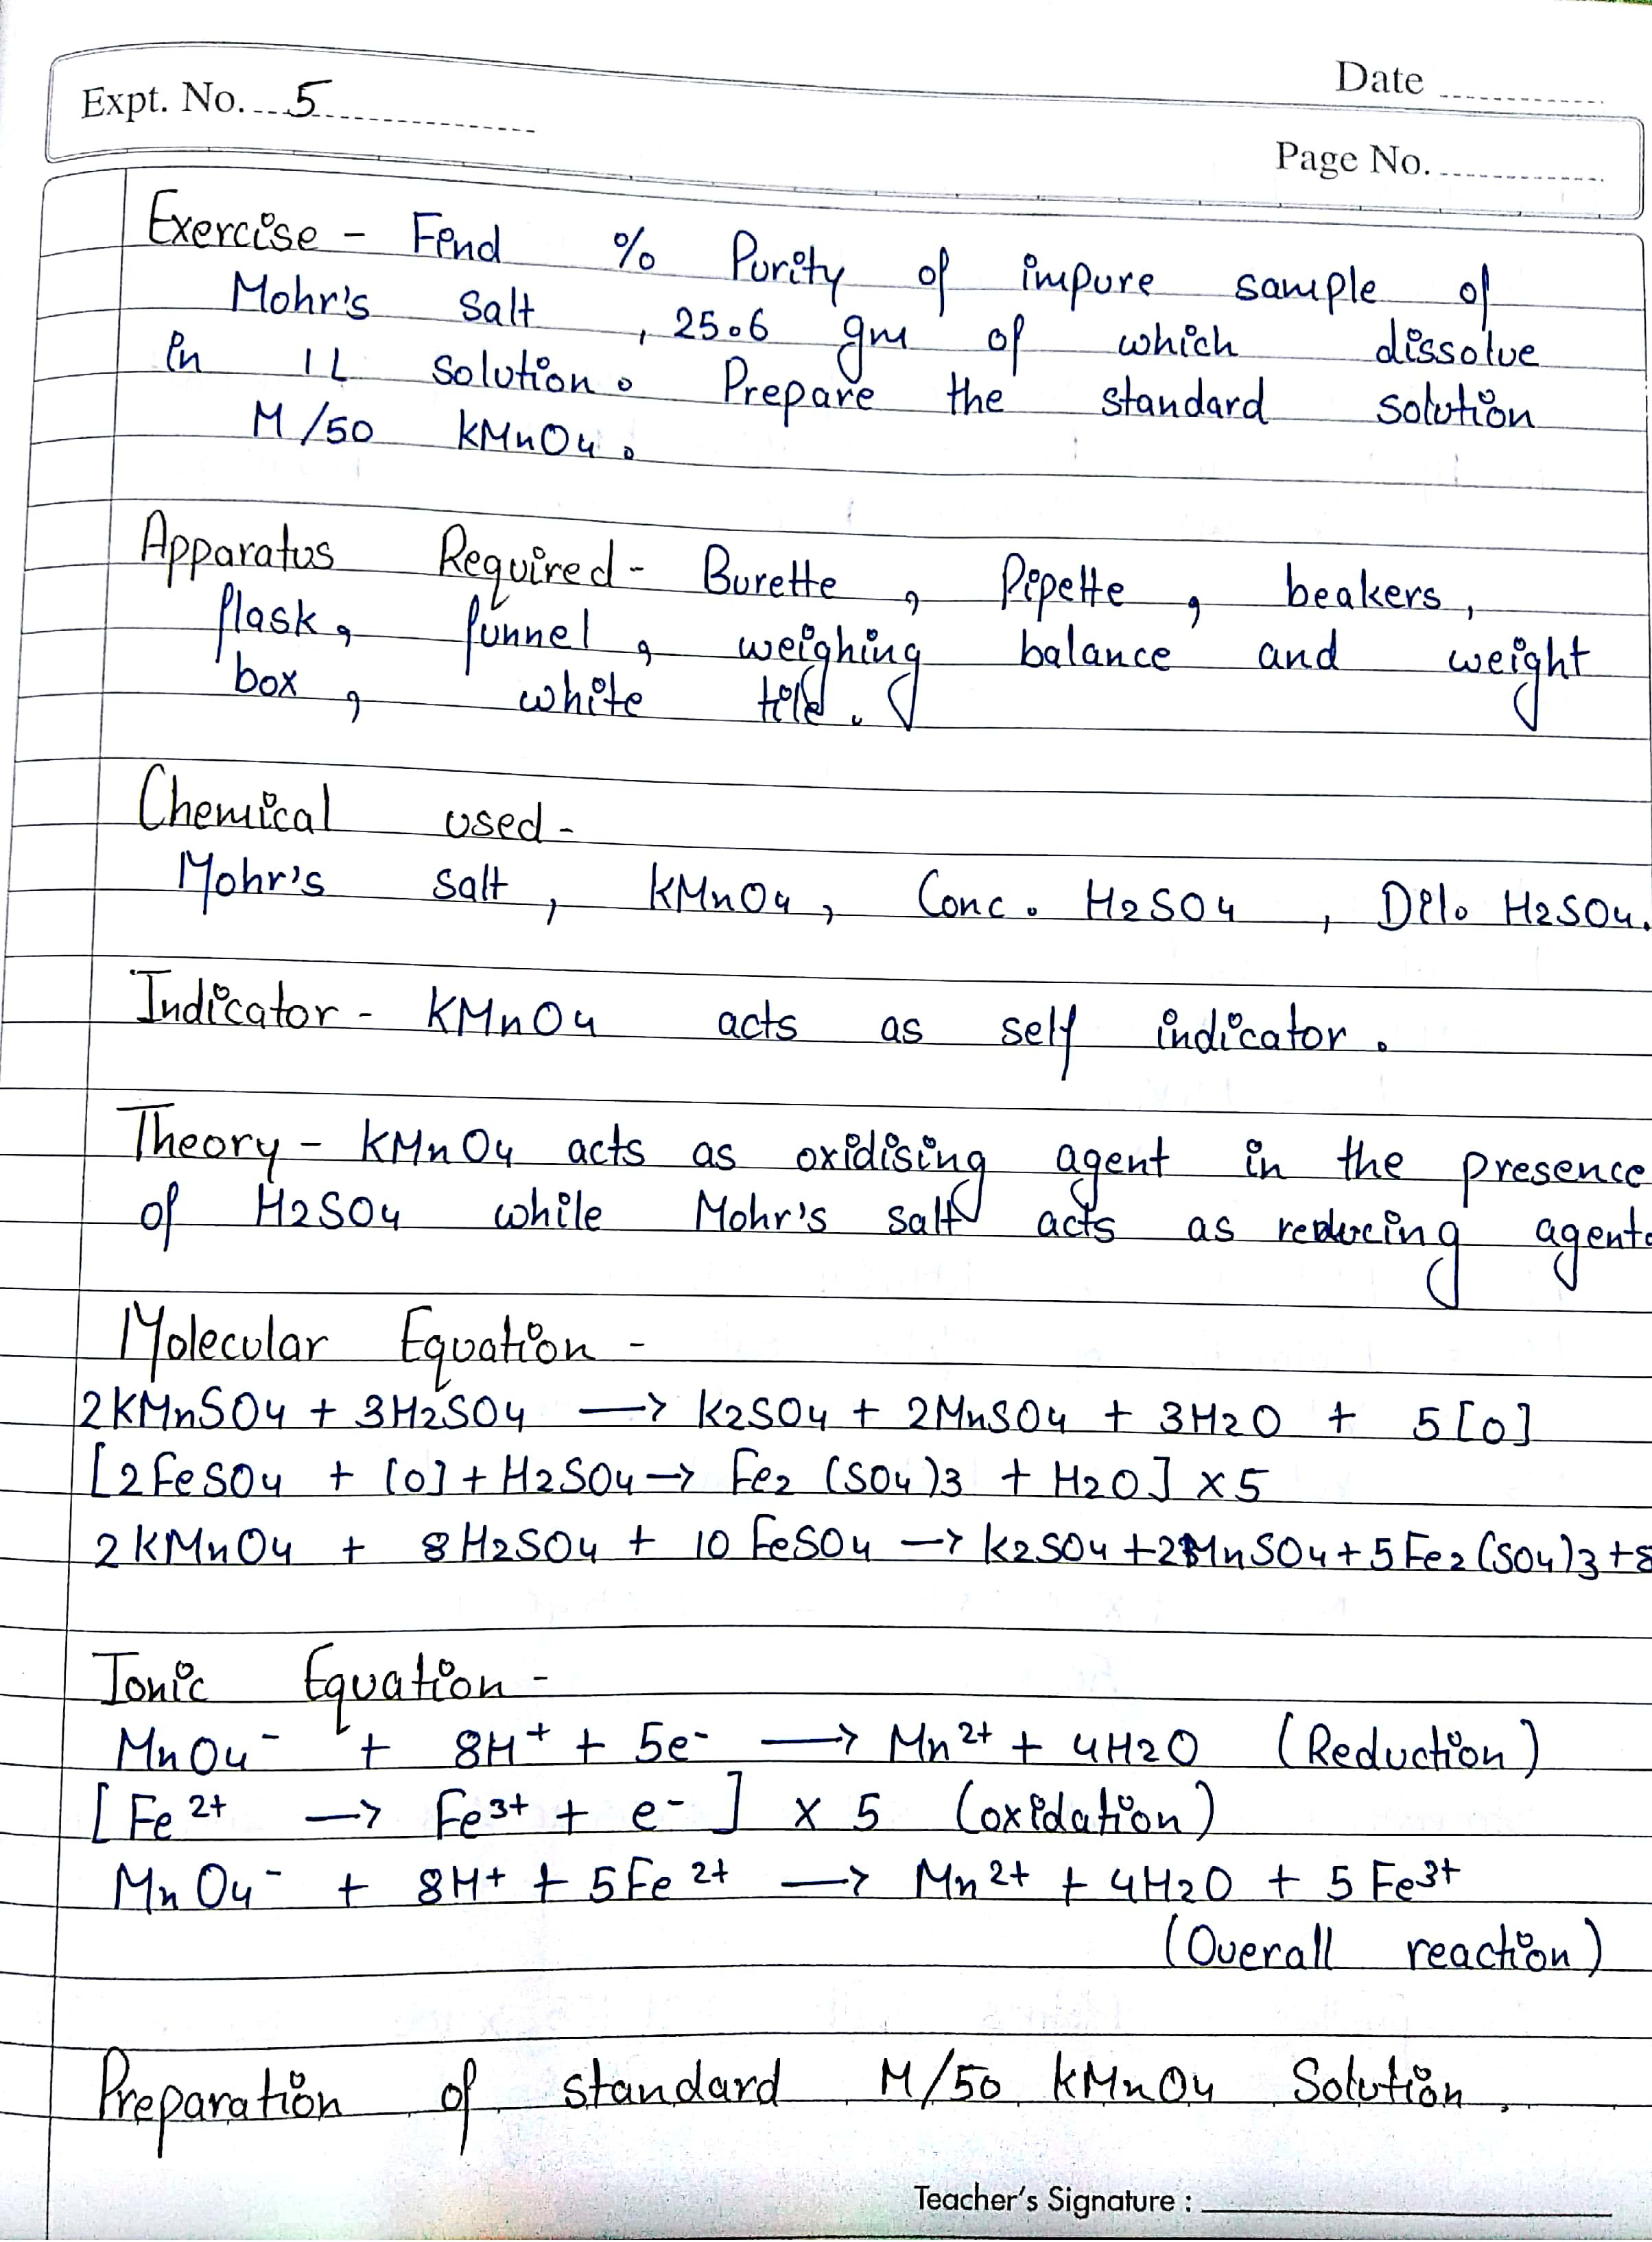 Date
Expt. No. 5
Page No.
Exercise - Find % Purity of impure sample of
Mohr's salt , 25.6 gm of which dissolve
in 1L solution. Prepare the standard solution
M/50 KMnO4.
Apparatus Required - Burette, Pipette, beakers,
flask, funnel, weighing balance and weight
box, white tile.
Chemical used -
Mohr's salt, KMnO4, Conc. H2SO4, Dil. H2SO4.
Indicator - KMnO4 acts as self indicator.
Theory - KMnO4 acts as oxidising agent in the presence
of H2SO4 while Mohr's salt acts as reducing agent.
Molecular Equation -
2KMnSO4 + 3H2SO4 → K2SO4 + 2MnSO4 + 3H2O + 5[O]
[2FeSO4 + [O] + H2SO4 → Fe2(SO4)3 + H2O] x 5
2KMnO4 + 8H2SO4 + 10FeSO4 → K2SO4 + 2MnSO4 + 5Fe2(SO4)3 + 8
Ionic Equation -
MnO4⁻ + 8H⁺ + 5e⁻ → Mn²⁺ + 4H2O (Reduction)
[Fe²⁺ → Fe³⁺ + e⁻] x 5 (oxidation)
MnO4⁻ + 8H⁺ + 5Fe²⁺ → Mn²⁺ + 4H2O + 5Fe³⁺
(Overall reaction)
Preparation of standard M/50 KMnO4 Solution.
Teacher's Signature :